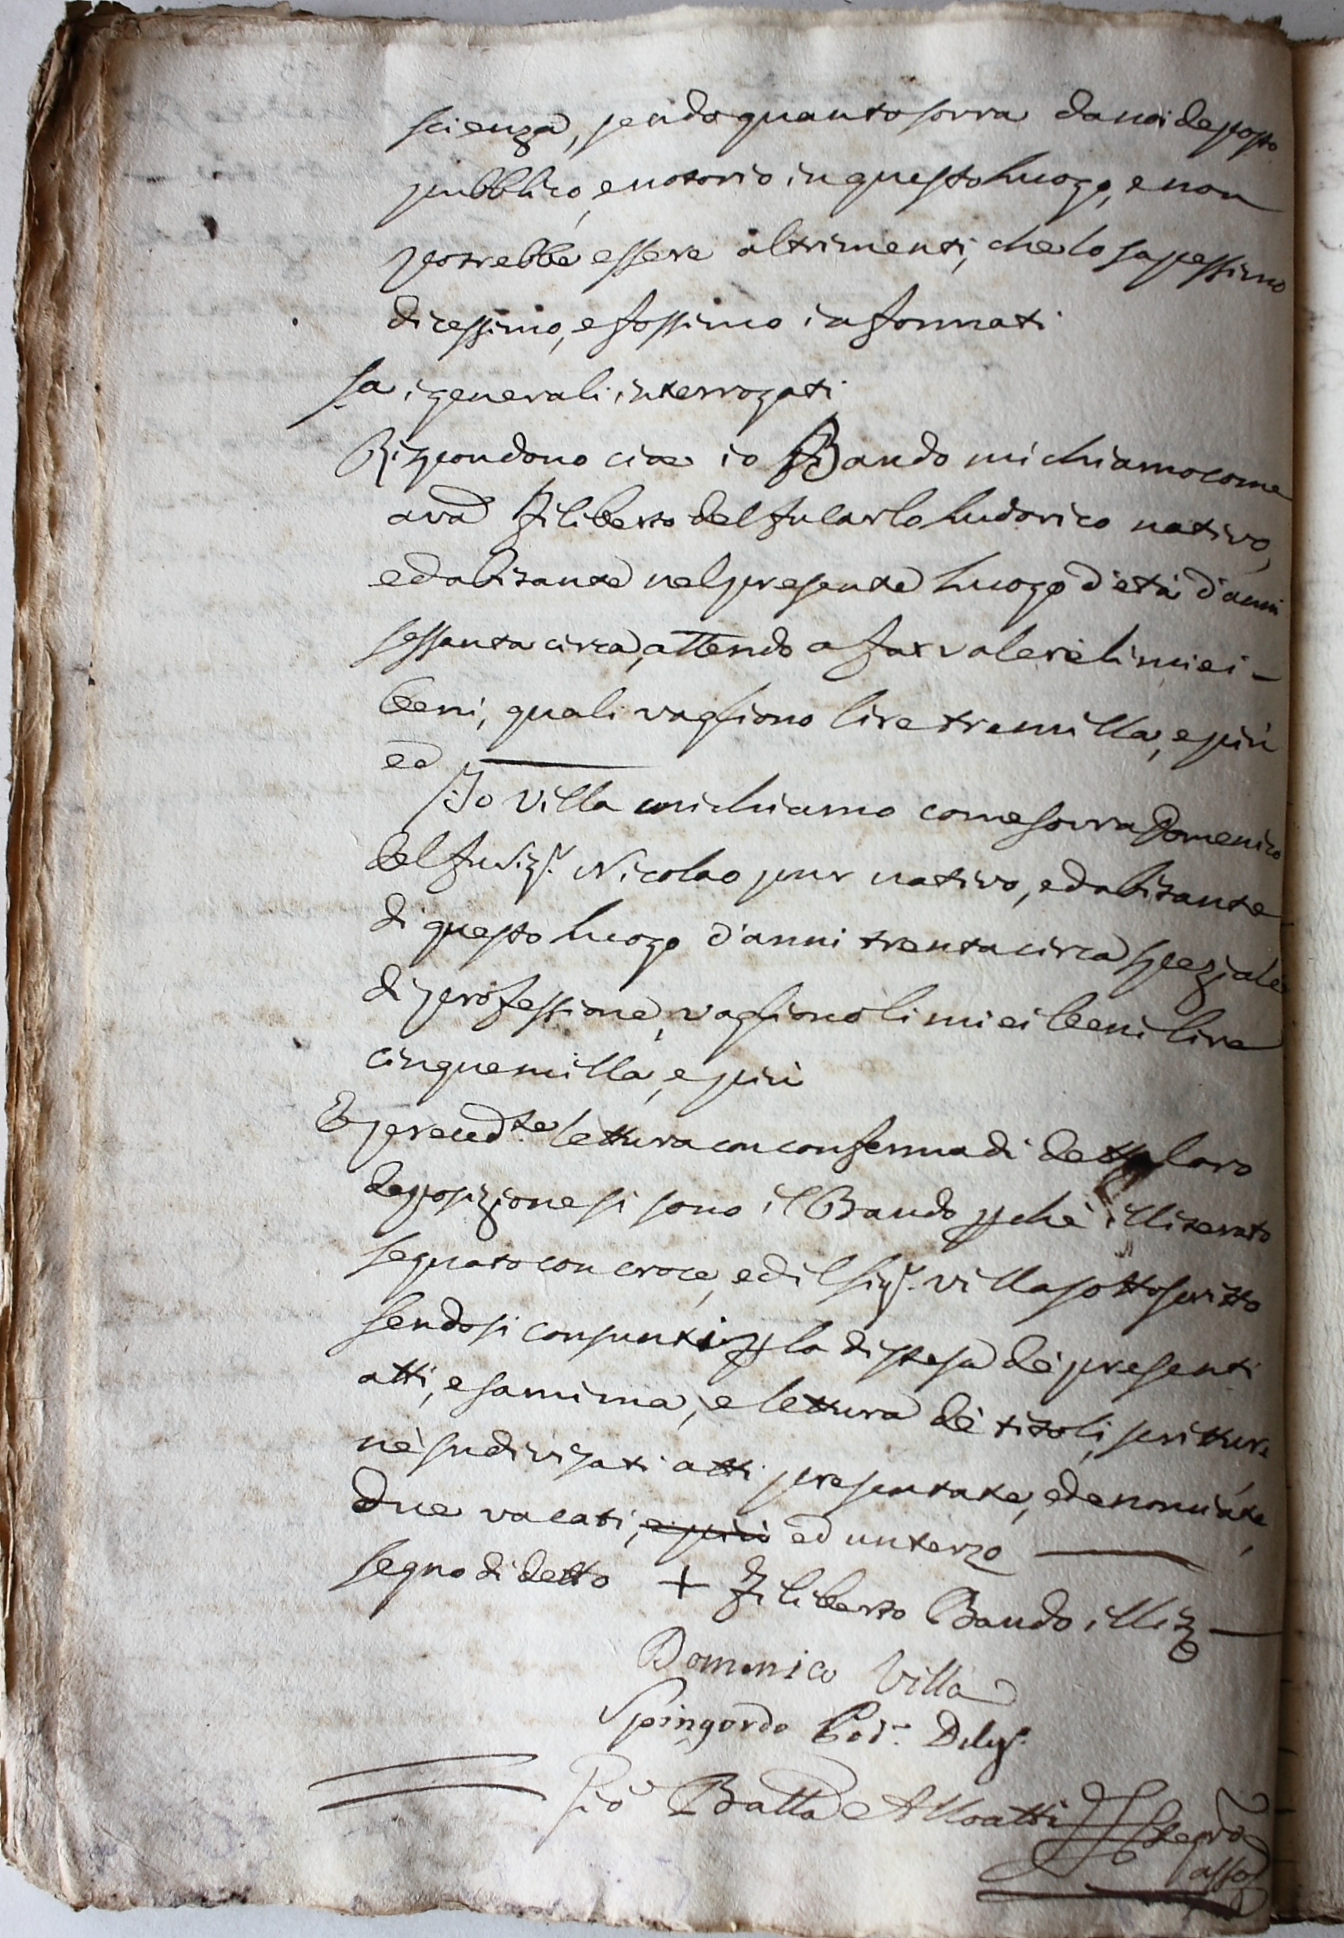 scienza, sendo quanto sovra da noi deposto
pubblico, e notorio in questo Luogo, e non
potrebbe essere altrimenti, che lo sapessimo
dicessimo, e fossimo informati
Sa i generali interrogati
Rispondono cioè io Bando mi chiamo come
avā Filiberto del fu Carlo Ludovico nativo,
ed abitante nel presente Luogo d'età d'anni
sessanta circa, attendo a far valere li miei
beni, quali vagliono lire tremilla, e più
ed
Io Villa mi chiamo come sovra Domenico
del fu Sigr. Nicolao pur nativo, ed abitante
di questo Luogo d'anni trenta circa speziale
di professione, vagliono li miei beni lire
cinquemilla, e più
E precedte. lettura con conferma di detta loro
deposizione si sono il Bando pchè illiterato
segnato con croce, ed il Sigr. Villa sottoscritto
sendosi consunti p la distesa de' presenti
atti, esamina, e lettura de' titoli, scritture
ne' sudivisati atti presentate, ed enonciate,
due vacati, e più ed un terzo
segno di detto + Filiberto Bando illit.
Domenico Villa
Spingardo Pod. Deleg.
Gio Batta Alloatti Segro
asso